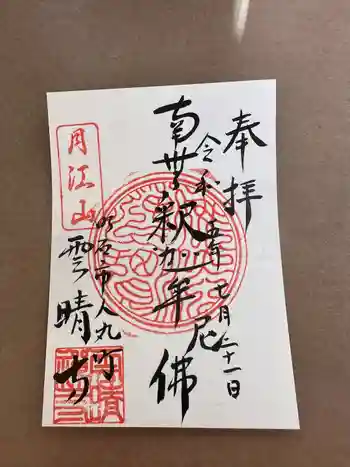 奉拝
令和五年七月二十一日
南無釈迦牟尼佛
明石市人丸町
雲晴寺
月江山